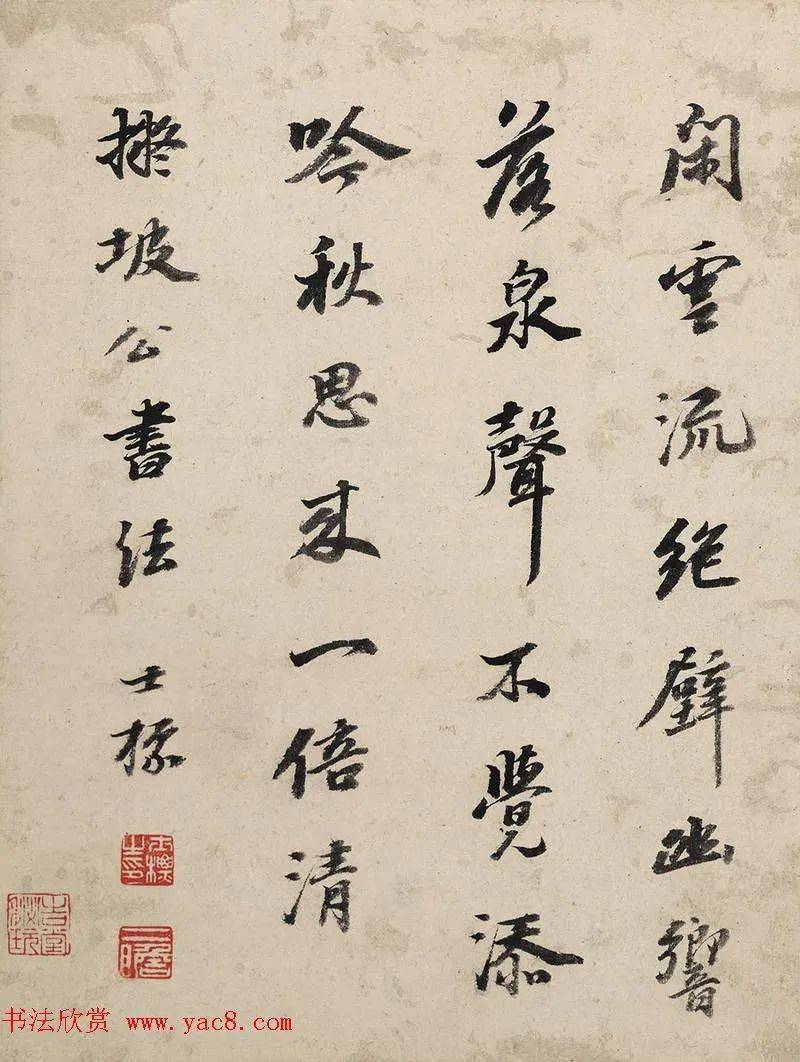 閑雲流絶壁幽響
落泉聲不覺添
吟秋思來一倍清
擬坡公書法 士標
士標之印
二瞻
书法欣赏 www.yac8.com